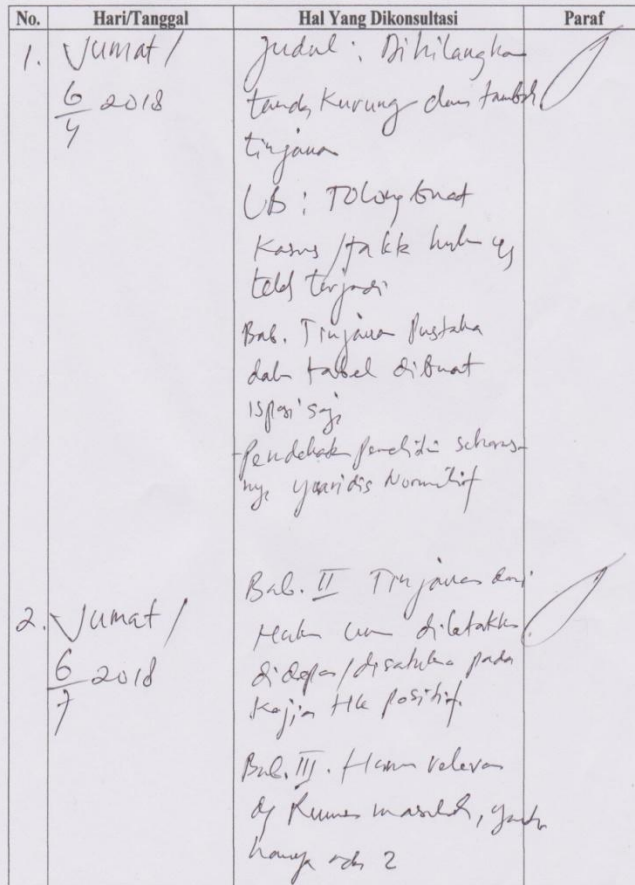 No. Hari/Tanggal Hal Yang Dikonsultasi Paraf
1. Jumat/ Judul: Dihilangkan
6/4 2018 tanda kurung dan tambah
tinjauan
LB: Tolong buat
Kasus /
telah terjadi
Bab. Tinjauan Pustaka
dalam tabel dibuat
1 spasi saja
Pendekatan penelitian seharus-
nya yuridis Normatif
2. Jumat/ Bab. II Tinjauan dari
6/7 2018 Hukum diletakkan
didepan/disatukan pada
Kajian Hk positif
Bab. III. Harus relevan
dg Rumusan masalah, yaitu
hanya ada 2